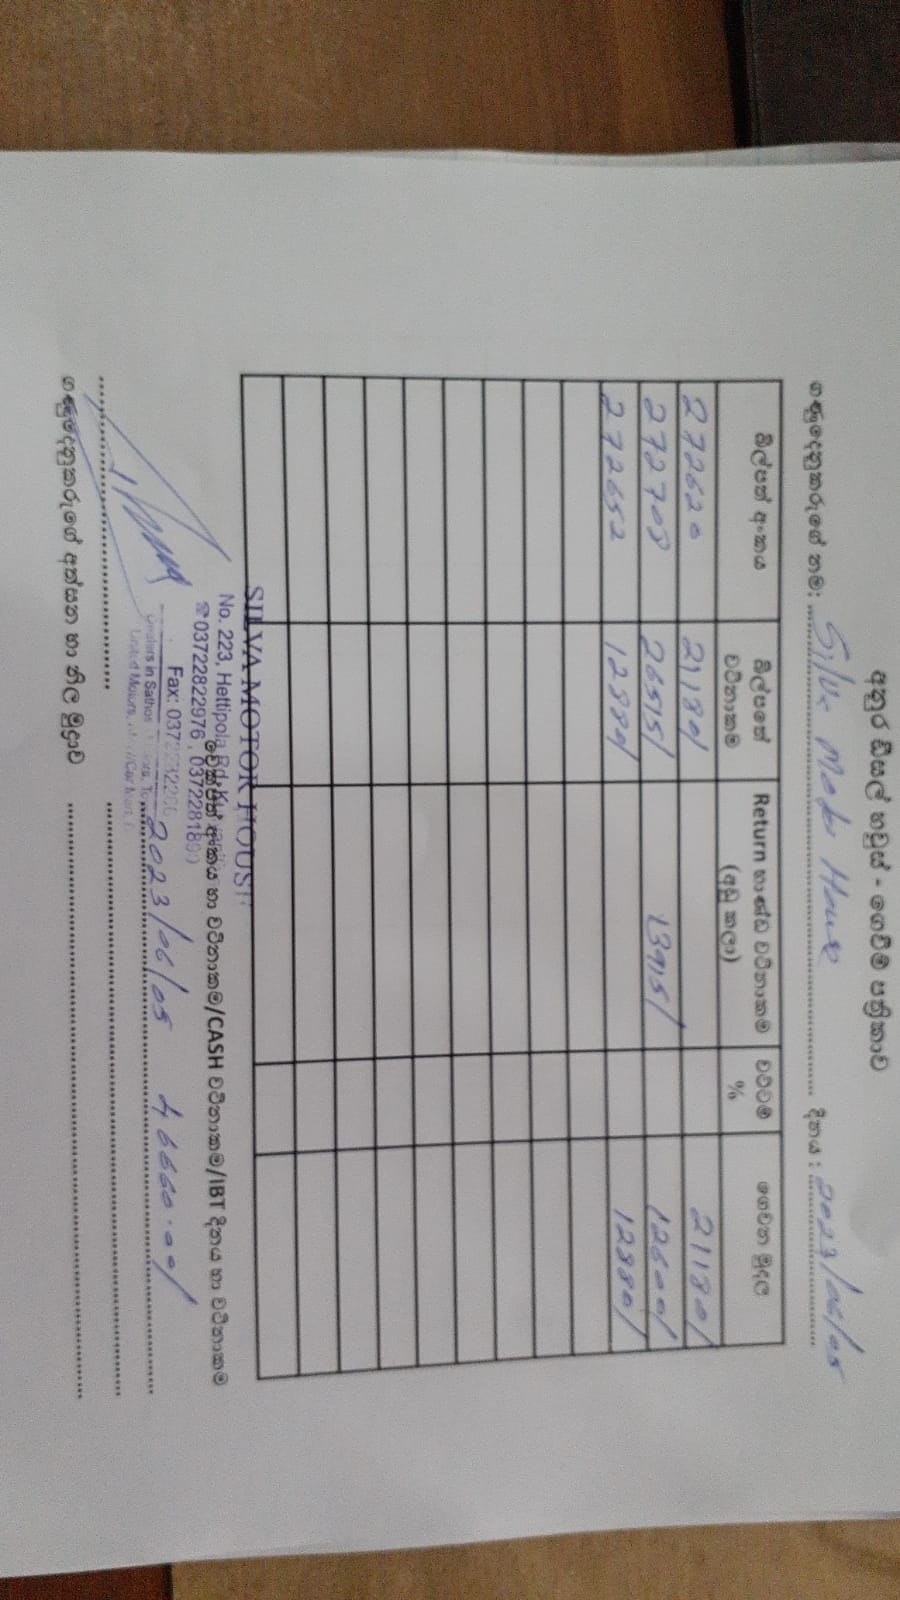 අනුර ඩීසල් හවුස් - ගෙවීම් පත්‍රිකාව
ගණුදෙනුකරුගේ නම: Silva Motor House දිනය : 2023/06/05
බිල්පත් අංකය බිල්පතේ වටිනාකම Return භාණ්ඩ වටිනාකම (අඩු කලා) වට්ටම් % ගෙවන මුදල
272620 21180/ 21180/
272708 26515/ 13915/ 12600/
272652 12880/ 12880/
SILVA MOTOR HOUSE
No. 223, Hettipola Rd, Ku
චෙක්පත් අංකය හා වටිනාකම/CASH වටිනාකම/IBT දිනය හා වටිනාකම
☎03722822976, 037228189
Fax: 037
2023/06/05 46660.00/
Dealers in Sathos
United Motors,
ගණුදෙනුකරුගේ අත්සන හා නිල මුද්‍රාව